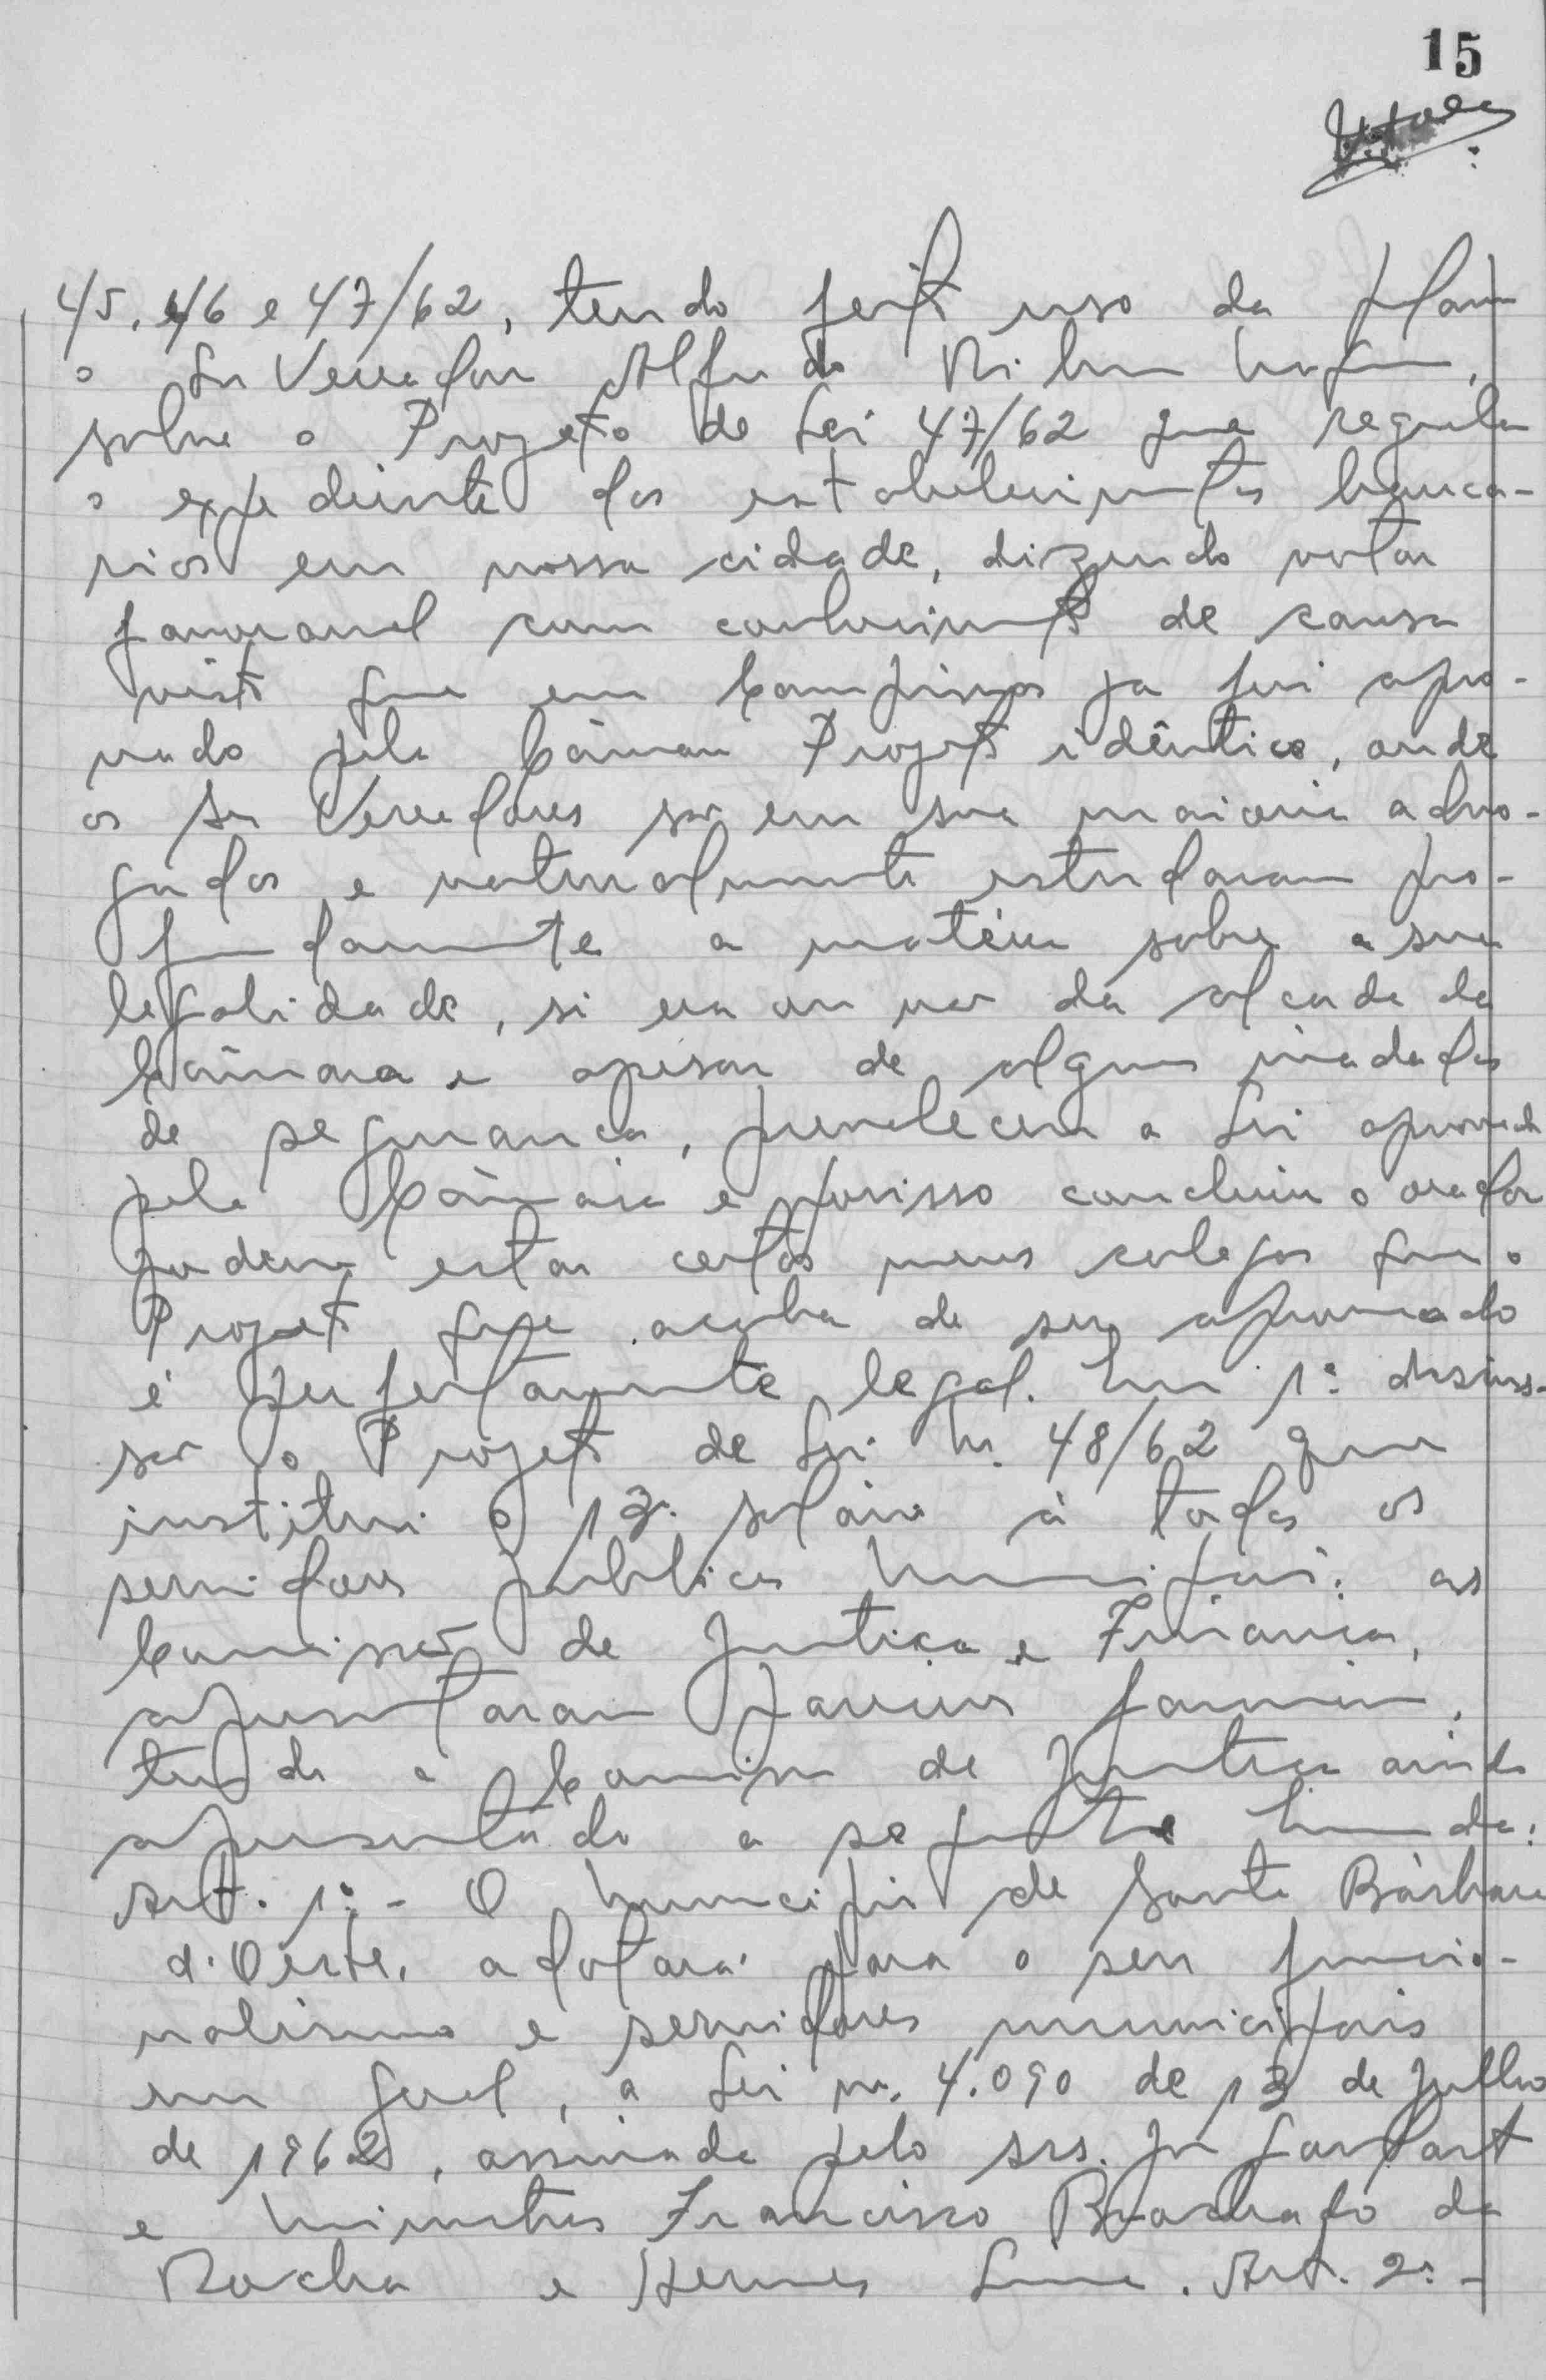 15
45, 46 e 47/62, tendo feito uso da
o Sr Vereador Alfredo
sobre o Projeto de Lei 47/62 que regula
o expediente dos estabelecimentos banca-
rios em nossa cidade, dizendo votar
favoravel com conhecimento de causa
visto que em Campinas ja foi apro-
vado pela Câmara Projeto idêntico, onde
os Srs Vereadores são em sua maioria advo-
gados e naturalmente estudaram pro-
fundamente a matéria sobre a sua
legalidade, si era ou não da alçada da
Câmara e apesar de alguns mandados
de segurança, prevaleceu a Lei aprovada
pela Câmara e porisso concluiu o orador
podem estar certos meus colegas que o
Projeto que acaba de ser aprovado
é perfeitamente legal. Em 1ª discus-
são o Projeto de Lei n. 48/62 que
institui o 13º salário à todos os
servidores publicos Municipais. as
Comissões de Justiça e Finanças,
apresentaram pareceres
tendo a Comissão de Justiça ainda
apresentado a seguinte Emenda:
Art. 1º - O Município de Santa Bárbara
d'Oeste, adotará para o seu funcio-
nalismo e servidores municipais
em geral, a Lei nº. 4.090 de 13 de Julho
de 1962, assinada pelo srs. João Goulart
e Ministros Francisco Brochado da
Rocha e Hermes Lima. Art. 2º -